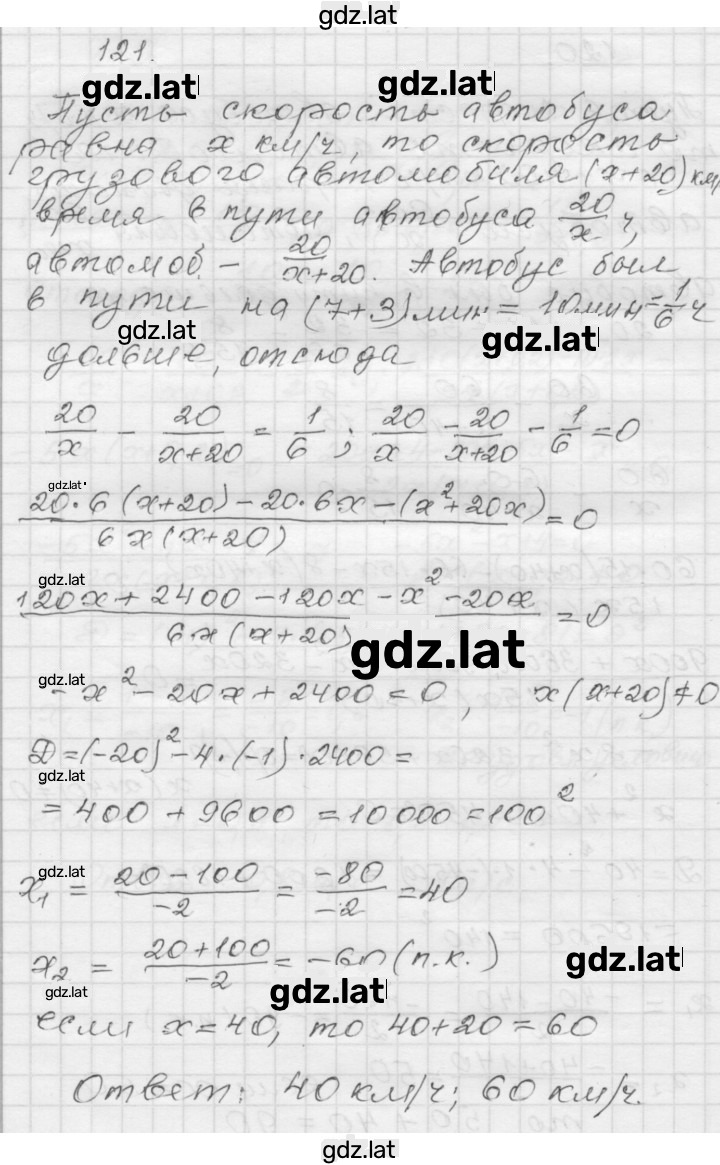 gdz.lat
121.
gdz.lat gdz.lat
Пусть скорость автобуса
равна x км/ч, то скорость
грузового автомобиля (x+20) км/
время в пути автобуса 20/x ч,
автомоб. – 20/(x+20). Автобус был
в пути на (7+3) мин = 10 мин = 1/6 ч
gdz.lat gdz.lat
дольше, отсюда
20/x – 20/(x+20) = 1/6 ; 20/x – 20/(x+20) – 1/6 = 0
gdz.lat
(20·6(x+20) – 20·6x – (x²+20x))/(6x(x+20)) = 0
gdz.lat
(120x + 2400 – 120x – x² – 20x)/(6x(x+20)) = 0
gdz.lat
gdz.lat
– x² – 20x + 2400 = 0, x(x+20) ≠ 0
D = (–20)² – 4·(–1)·2400 =
gdz.lat
= 400 + 9600 = 10000 = 100²
gdz.lat
x₁ = (20 – 100)/–2 = –80/–2 = 40
gdz.lat gdz.lat
x₂ = (20+100)/–2 = –60 (п.к.)
gdz.lat gdz.lat
если x = 40, то 40+20 = 60
Ответ: 40 км/ч; 60 км/ч.
gdz.lat